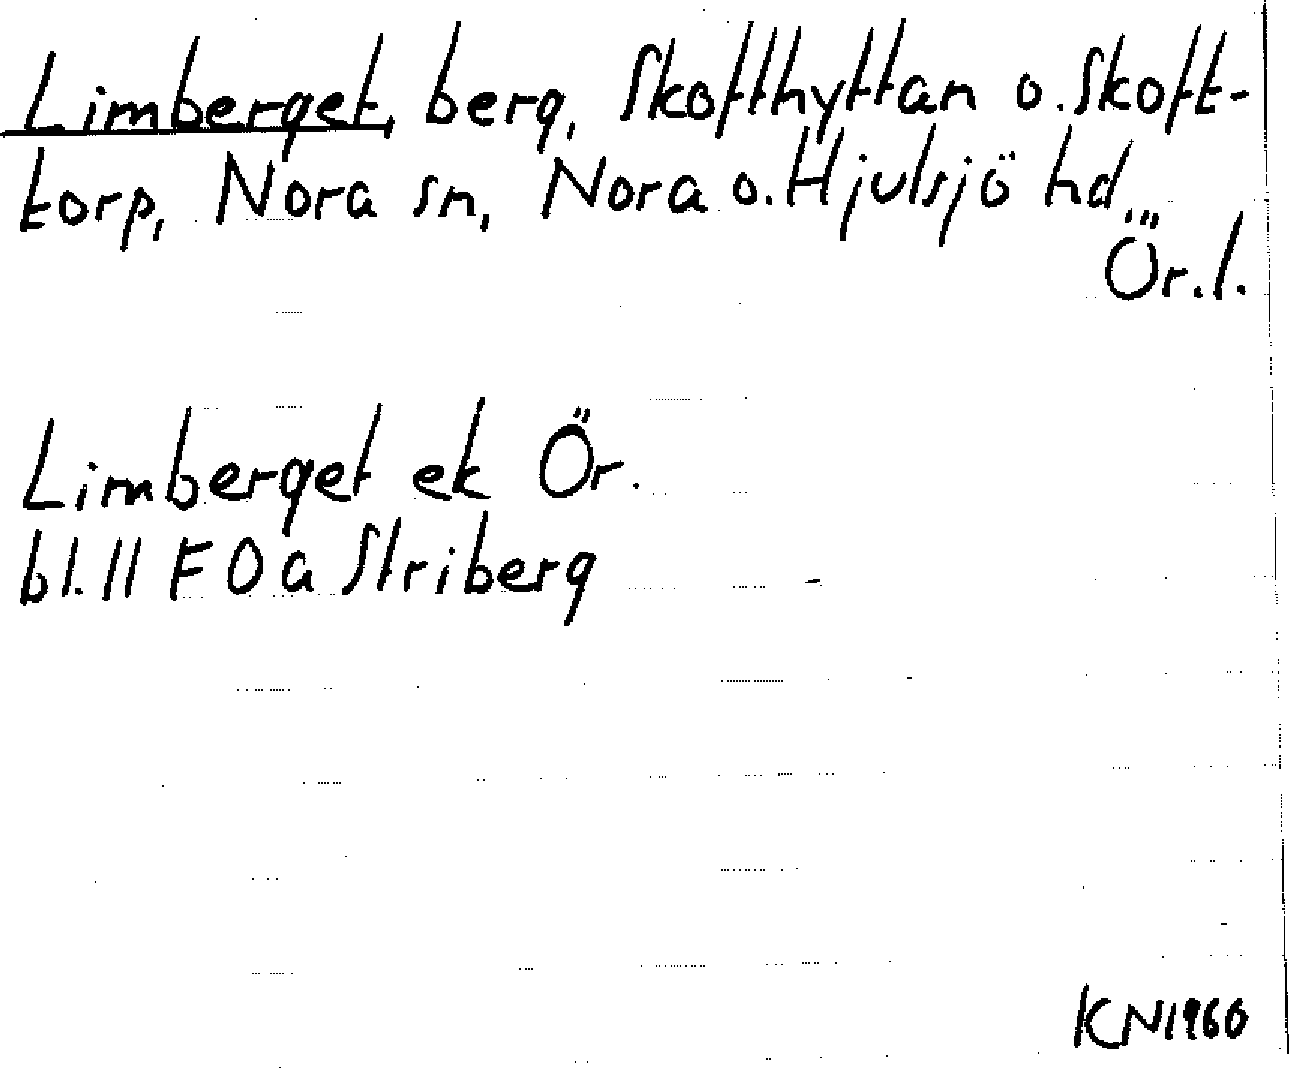 Limberget, berg, Skofthyttan o. Skoft-
torp, Nora sn, Nora o. Hjulsjö hd,
Ör. l.
Limberget ek Ör.
bl. 11 F 0 a Striberg
KN1960